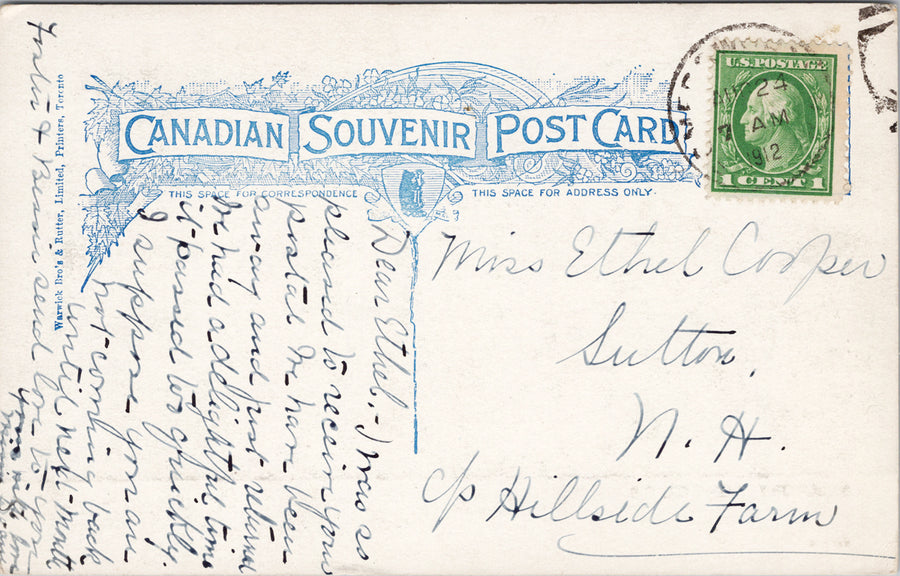 CANADIAN SOUVENIR POST CARD
THIS SPACE FOR CORRESPONDENCE
THIS SPACE FOR ADDRESS ONLY.
Warwick Bro's & Rutter, Limited, Printers, Toronto
U.S. POSTAGE
1 CENT 1
24
7 AM
912
Miss Ethel Cooper
Sutton,
N. H.
c/o Hillside Farm
Dear Ethel,- I was so
pleased to receive your
postal. We have been
away and just returned
We had a delightful time
it passed too quickly.
I suppose you are
not coming back
until next month
& Bennie send love to you
Yours with love